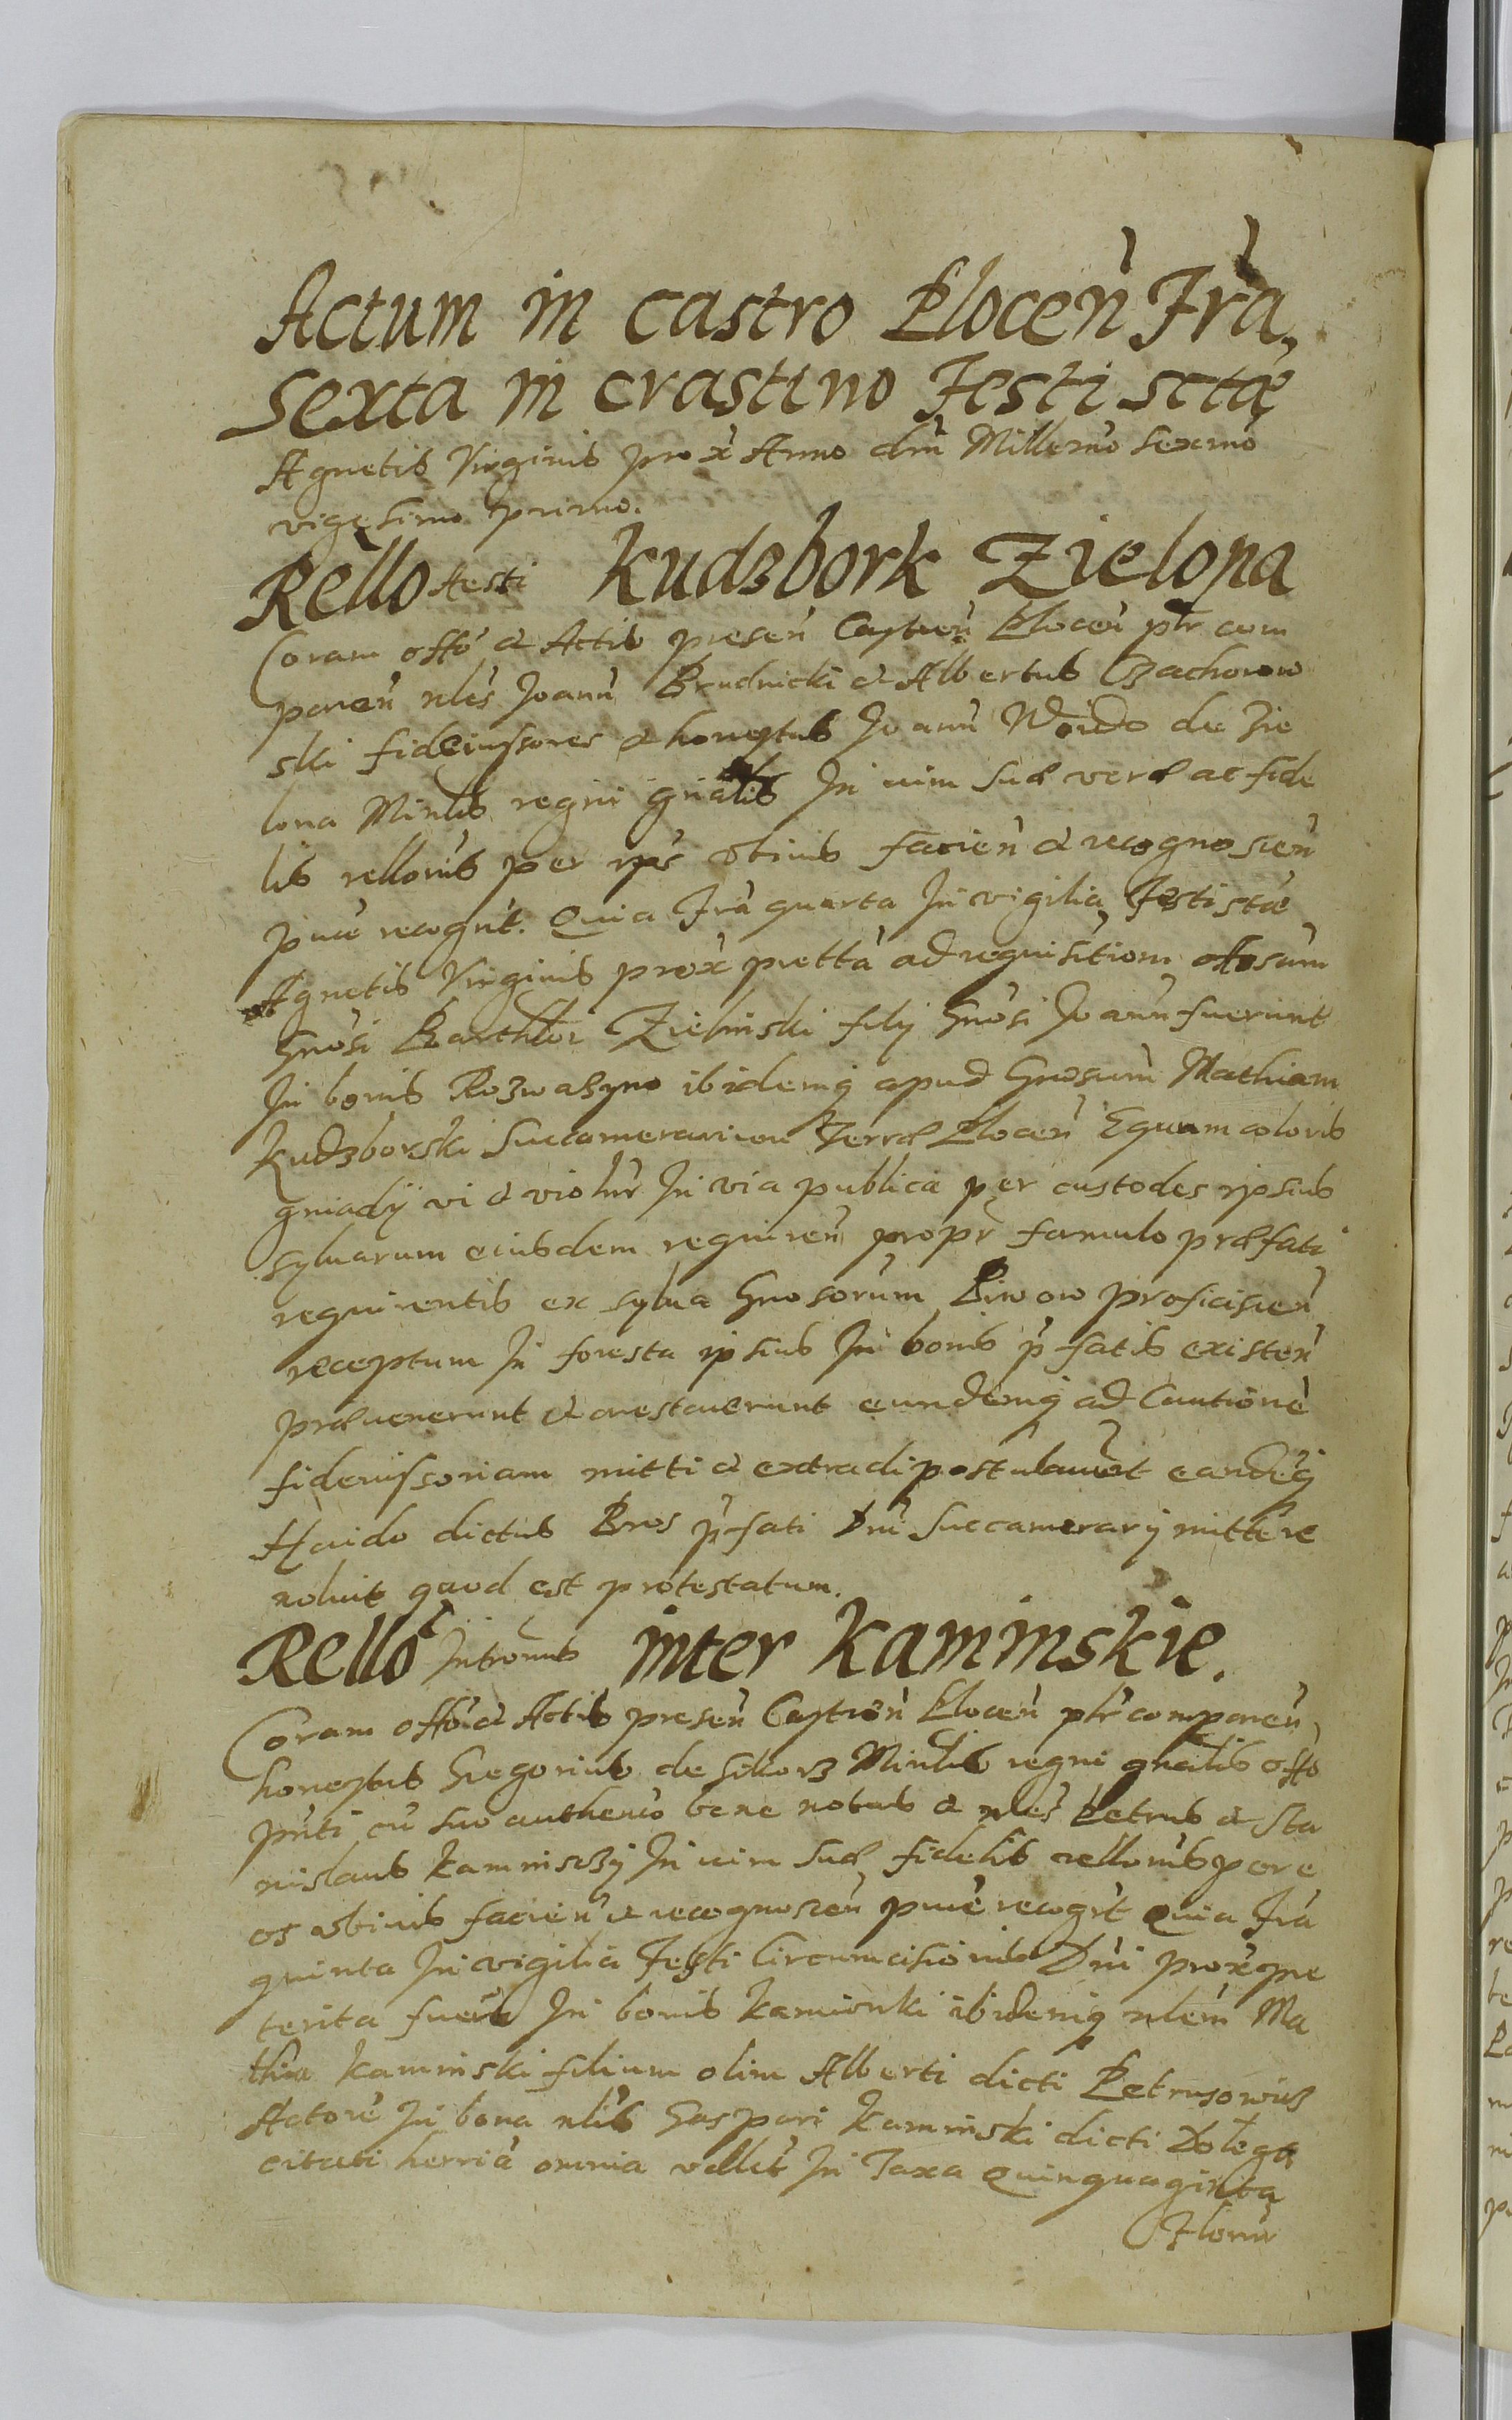 Actum in castro Plocen̄ Fr̄a
sexta in crastino Festi sctæ
Agnetis Virginis prox̄ Anno dn̄i Millemō sexmō
vigesimo primo.
Rellō Aresti Kudzbork Zielona
Coram offō et Actis presen̄ Castren̄ Plocen̄ pl̄r com
paren̄ nl̄es Joann̄ Brudnicki et Albertus Czachorow
ski fideiussores et honestus Joann̄ Woido de Zie
lona Minl̄is regni gn̄alis In vim suæ veræ ac fide
lis relloīnis per ip̄s obinis facien̄ et recognoscen̄
pu͞ce recogn̄t. Quia Fr̄a quarta In vigilia Festi stæ
Agnetis Virginis prox̄ prettā ad requisitiōm
Gn̄osi Barthl̄oi Zielinski filij Gn̄osi Joann̄ fuerunt
In bonis Rozwazyno ibidemq apud Gn̄osum Mathiam
Kudzborski Succamerarium Terræ Plocen̄ Equum coloris
gniadÿ vi et violn̄r In via publica per custodes ipsius
syluarum eiusdem requiren̄ propr̄ famulo præfati
requirentis ex sylua Gnosorum Piwow proficiscen̄
receptum In foresta ipsius In bonis p̄fatis existen̄
præuenerunt et arestauerunt eundemq ad Cautionē
fideiussoriam mitti et extradi postulauer̄t eandēq
Haido dictus Bros p̄fati Dn̄i Succamerarÿ mittere
noluit quod est protestatum.
Rellō Intromis inter Kaminskie.
Coram offō et Actis presen̄ Castren̄ Plocen̄ pl̄r comparen̄
honestus Gregorius de Sikorz Minl̄is regni gn̄alis offō
pn̄ti cū suo autheō bene notus et nl̄es Petrus et Sta
nislaus Kaminsczÿ In vim suæ fidelis relloīnis per e
os obinis facien̄ et recognoscen̄ pu͞ce recogn̄t Quia Fr̄a
quinta In vigilia Festi Circumcisionis Dn̄i prox̄ pre
terita fuer̄t In bonis Kamionki ibidemq nl̄em Ma
thia Kaminski filium olim Alberti dicti Petrusowicz
Actorē In bona nl̄is Gaspari Kaminski dicti Dolega
citati herriā omnia vallēt In Taxa Quinquaginta
Floren̄